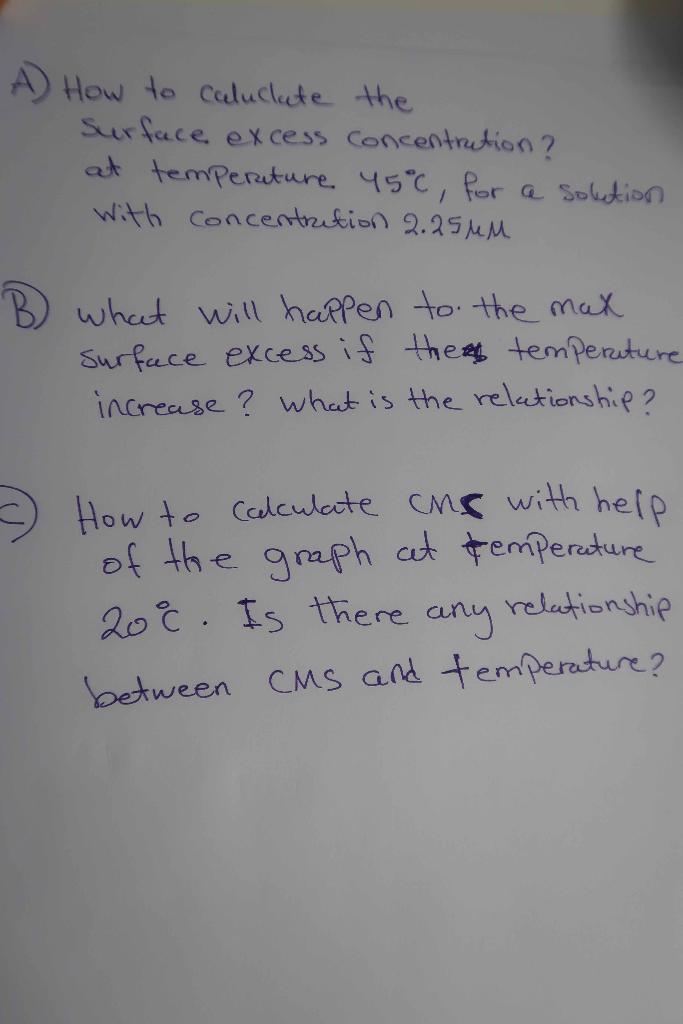 A) How to caluclate the
surface excess concentration?
at temperature 45°C, for a solution
with concentration 2.25 µM
B) what will happen to the max
surface excess if the temperature
increase? what is the relationship?
C) How to calculate CMC with help
of the graph at temperature
20°C. Is there any relationship
between CMS and temperature?